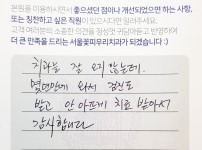 본원을 이용하시면서 좋으셨던 점이나 개선되었으면 하는 사항,
또는 칭찬하고 싶은 직원이 있으시다면 알려주세요.
고객 여러분의 소중한 의견을 정성껏 귀담아듣고 반영하여
더 큰 만족을 드리는 서울꽃피우리치과가 되겠습니다 :)
치과를 잘 오지 않는데.
몇년만에 와서 검진도
받고 안 아프게 치료 받아서
감사합니다